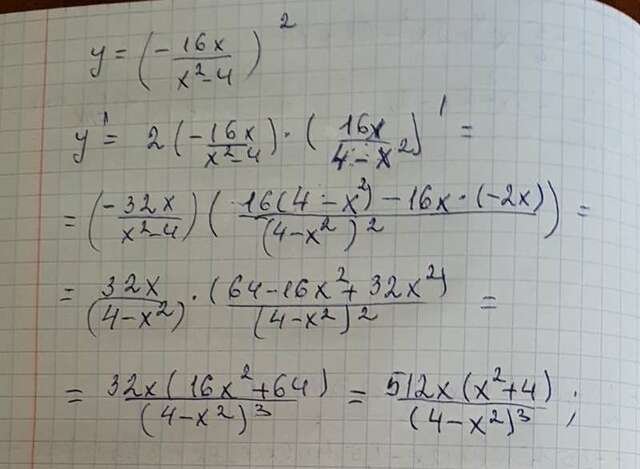 y = (- 16x / x² - 4)²
y' = 2(- 16x / x² - 4) · (16x / 4 - x²)' =
= (- 32x / x² - 4)(16(4 - x²) - 16x · (-2x) / (4 - x²)²) =
= 32x / (4 - x²) · (64 - 16x² + 32x²) / (4 - x²)² =
= 32x(16x² + 64) / (4 - x²)³ = 512x(x² + 4) / (4 - x²)³ ;